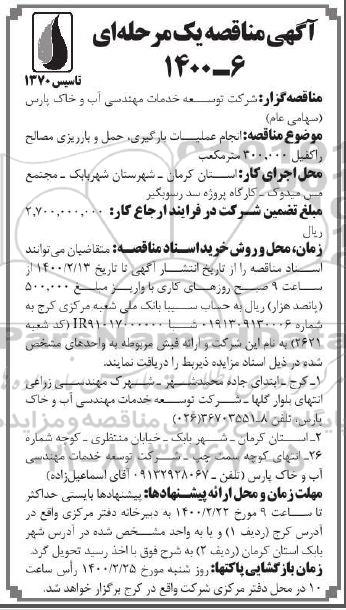 آگهی مناقصه یک مرحله‌ای
۶-۱۴۰۰
تاسیس ۱۳۷۰
مناقصه‌گزار: شرکت توسعه خدمات مهندسی آب و خاک پارس
(سهامی عام)
موضوع مناقصه: انجام عملیات بارگیری، حمل و باریزی مصالح
راکفیل ۳۰۰,۰۰۰ مترمکعب
محل اجرای کار: استان کرمان - شهرستان شهربابک - مجتمع
مس میدوک - کارگاه پروژه سد رسوبگیر
مبلغ تضمین شرکت در فرایند ارجاع کار: ۲,۷۰۰,۰۰۰,۰۰۰
ریال
زمان، محل و روش خرید اسناد مناقصه: متقاضیان می‌توانند
اسناد مناقصه را از تاریخ انتشار آگهی تا تاریخ ۱۴۰۰/۲/۱۳ از
ساعت ۹ صبح روزهای کاری با واریز مبلغ ۵۰۰,۰۰۰
(پانصد هزار) ریال به حساب سیبا بانک ملی شعبه مرکزی کرج به
شماره ۰۱۹۱۳۰۹۱۳۰۰۰۶ شبا IR۹۱۰۱۷۰۰۰۰۰۰ (کد شعبه
۲۶۷۱) به نام این شرکت و ارائه فیش مربوطه به واحدهای مشخص
شده در ذیل اسناد مزایده ذیربط را دریافت نمایند.
۱-کرج - ابتدای جاده محمدشهر - شهرک مهندسی زراعی
انتهای بلوار گلها - شرکت توسعه خدمات مهندسی آب و خاک
پارس: تلفن ۸-۳۶۷۰۳۵۵۱(۰۲۶)
۲-استان کرمان - شهر بابک - خیابان منتظری - کوچه شماره
۲۶- انتهای کوچه سمت چپ - شرکت توسعه خدمات مهندسی
آب و خاک پارس (تلفن - ۰۹۱۳۲۹۲۸۰۶۷ آقای اسماعیل‌زاده)
مهلت زمان و محل ارائه پیشنهادها: پیشنهادها بایستی حداکثر
تا ساعت ۹ مورخ ۱۴۰۰/۲/۲۲ به دبیرخانه دفتر مرکزی واقع در
آدرس کرج (ردیف ۱) و یا به واحد مشخص شده در آدرس شهر
بابک استان کرمان (ردیف ۲) به شرح فوق با اخذ رسید تحویل گردد.
زمان بازگشایی پاکتها: روز شنبه مورخ ۱۴۰۰/۲/۲۵ رأس ساعت
۱۰ در محل دفتر مرکزی شرکت واقع در کرج برگزار خواهد شد.